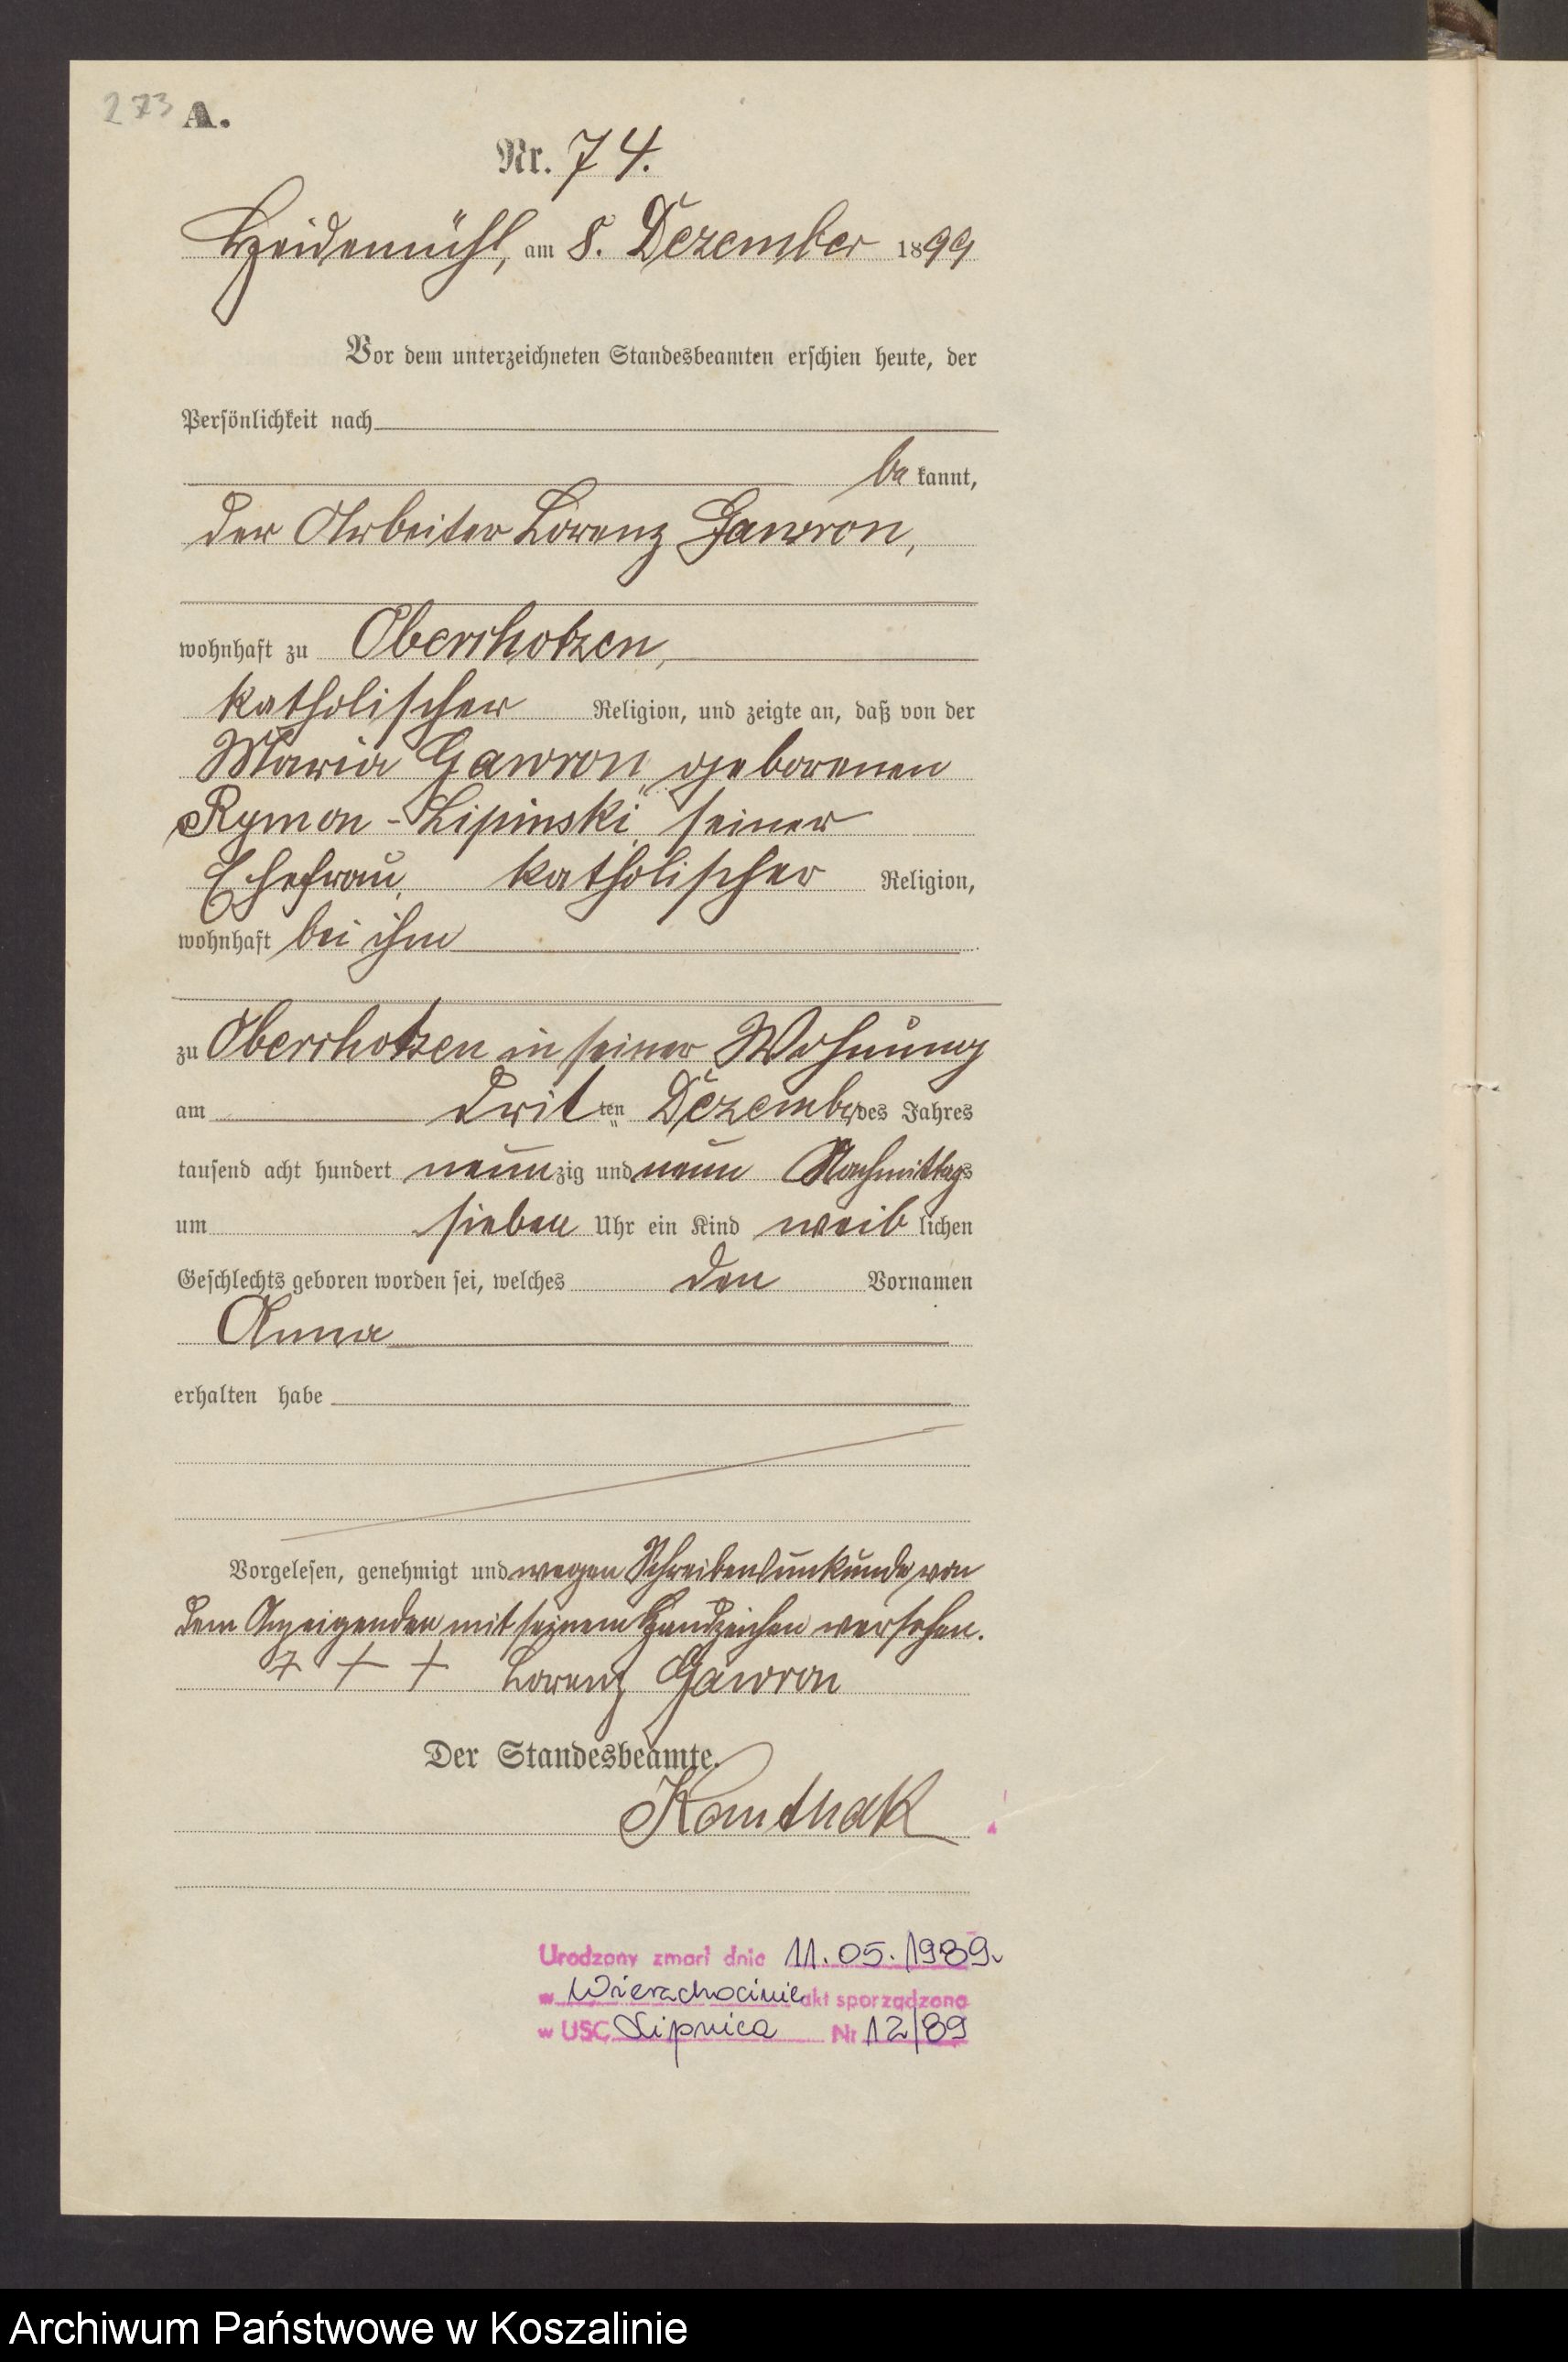 273 A.
Nr. 74.
Heidemühl, am 8. Dezember 1899
Vor dem unterzeichneten Standesbeamten erschien heute, der
Persönlichkeit nach
be kannt,
der Arbeiter Lorenz Gawron,
wohnhaft zu Oberrhotzen,
katholischer Religion, und zeigte an, daß von der
Maria Gawron geborenen
Rymon-Lipinski seiner
Ehefrau, katholischer Religion,
wohnhaft bei ihm
zu Oberrhotzen in seiner Wohnung
am drit ten Dezember des Jahres
tausend acht hundert neunzig und neun Nachmittags
um sieben Uhr ein Kind weiblichen
Geschlechts geboren worden sei, welches den Vornamen
Anna
erhalten habe
Vorgelesen, genehmigt und wegen Schreibensunkunde von
dem Anzeigenden mit seinem Handzeichen versehen.
+ + + Lorenz Gawron
Der Standesbeamte.
Kanthak
Urodzony zmarł dnia 11.05.1989.
w Wierzchocinie akt sporządzono
w USC Lipnica Nr 12/89
Archiwum Państwowe w Koszalinie